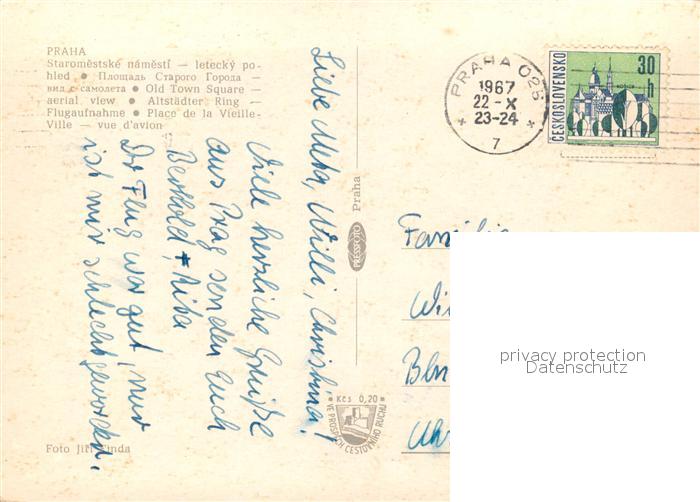 PRAHA
Staroměstské náměstí — letecký po-
hled ● Площадь Старого Города —
вид с самолета ● Old Town Square —
aerial view ● Altstädter Ring —
Flugaufnahme ● Place de la Vieille-
Ville — vue d'avion
Liebe Meta, Willi, Christina!
Viele herzliche Grüße
aus Prag senden Euch
Berthold +
Der Flug war gut, nur
ist mir schlecht geworden.
Foto Jiří
PRESSFOTO Praha
Kčs 0,20
VE PROSPĚCH CESTOVNÍHO RUCHU
PRAHA 025
1967
22-X
23-24
7
ČESKOSLOVENSKO
30 h
Familie
privacy protection
Datenschutz